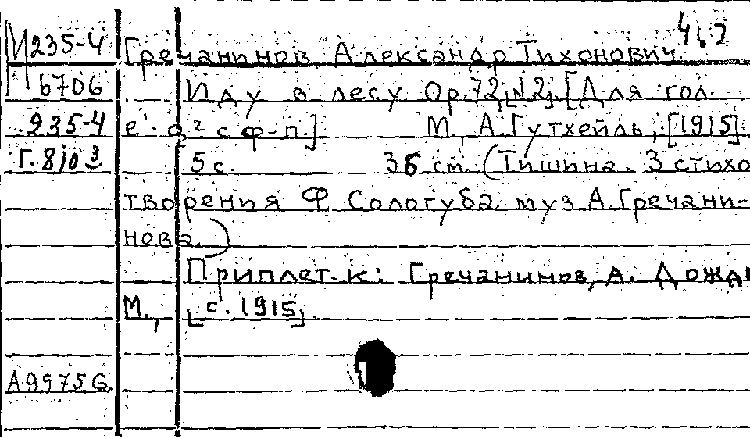 4.2
И235-4 Гречанинов Александр Тихонович.
6706 Иду в лесу Op. 72, №2, [Для гол.
235-4 с ф-п.] М., А. Гутхейль, [1915]
Г. 8103 5 с. 36 см. (Тишина. 3 стихо-
творения Ф. Сологуба муз А. Гречани-
нова.)
Приплет. к: Гречанинов, А. Дождь
М., [с. 1915].
А9975б.